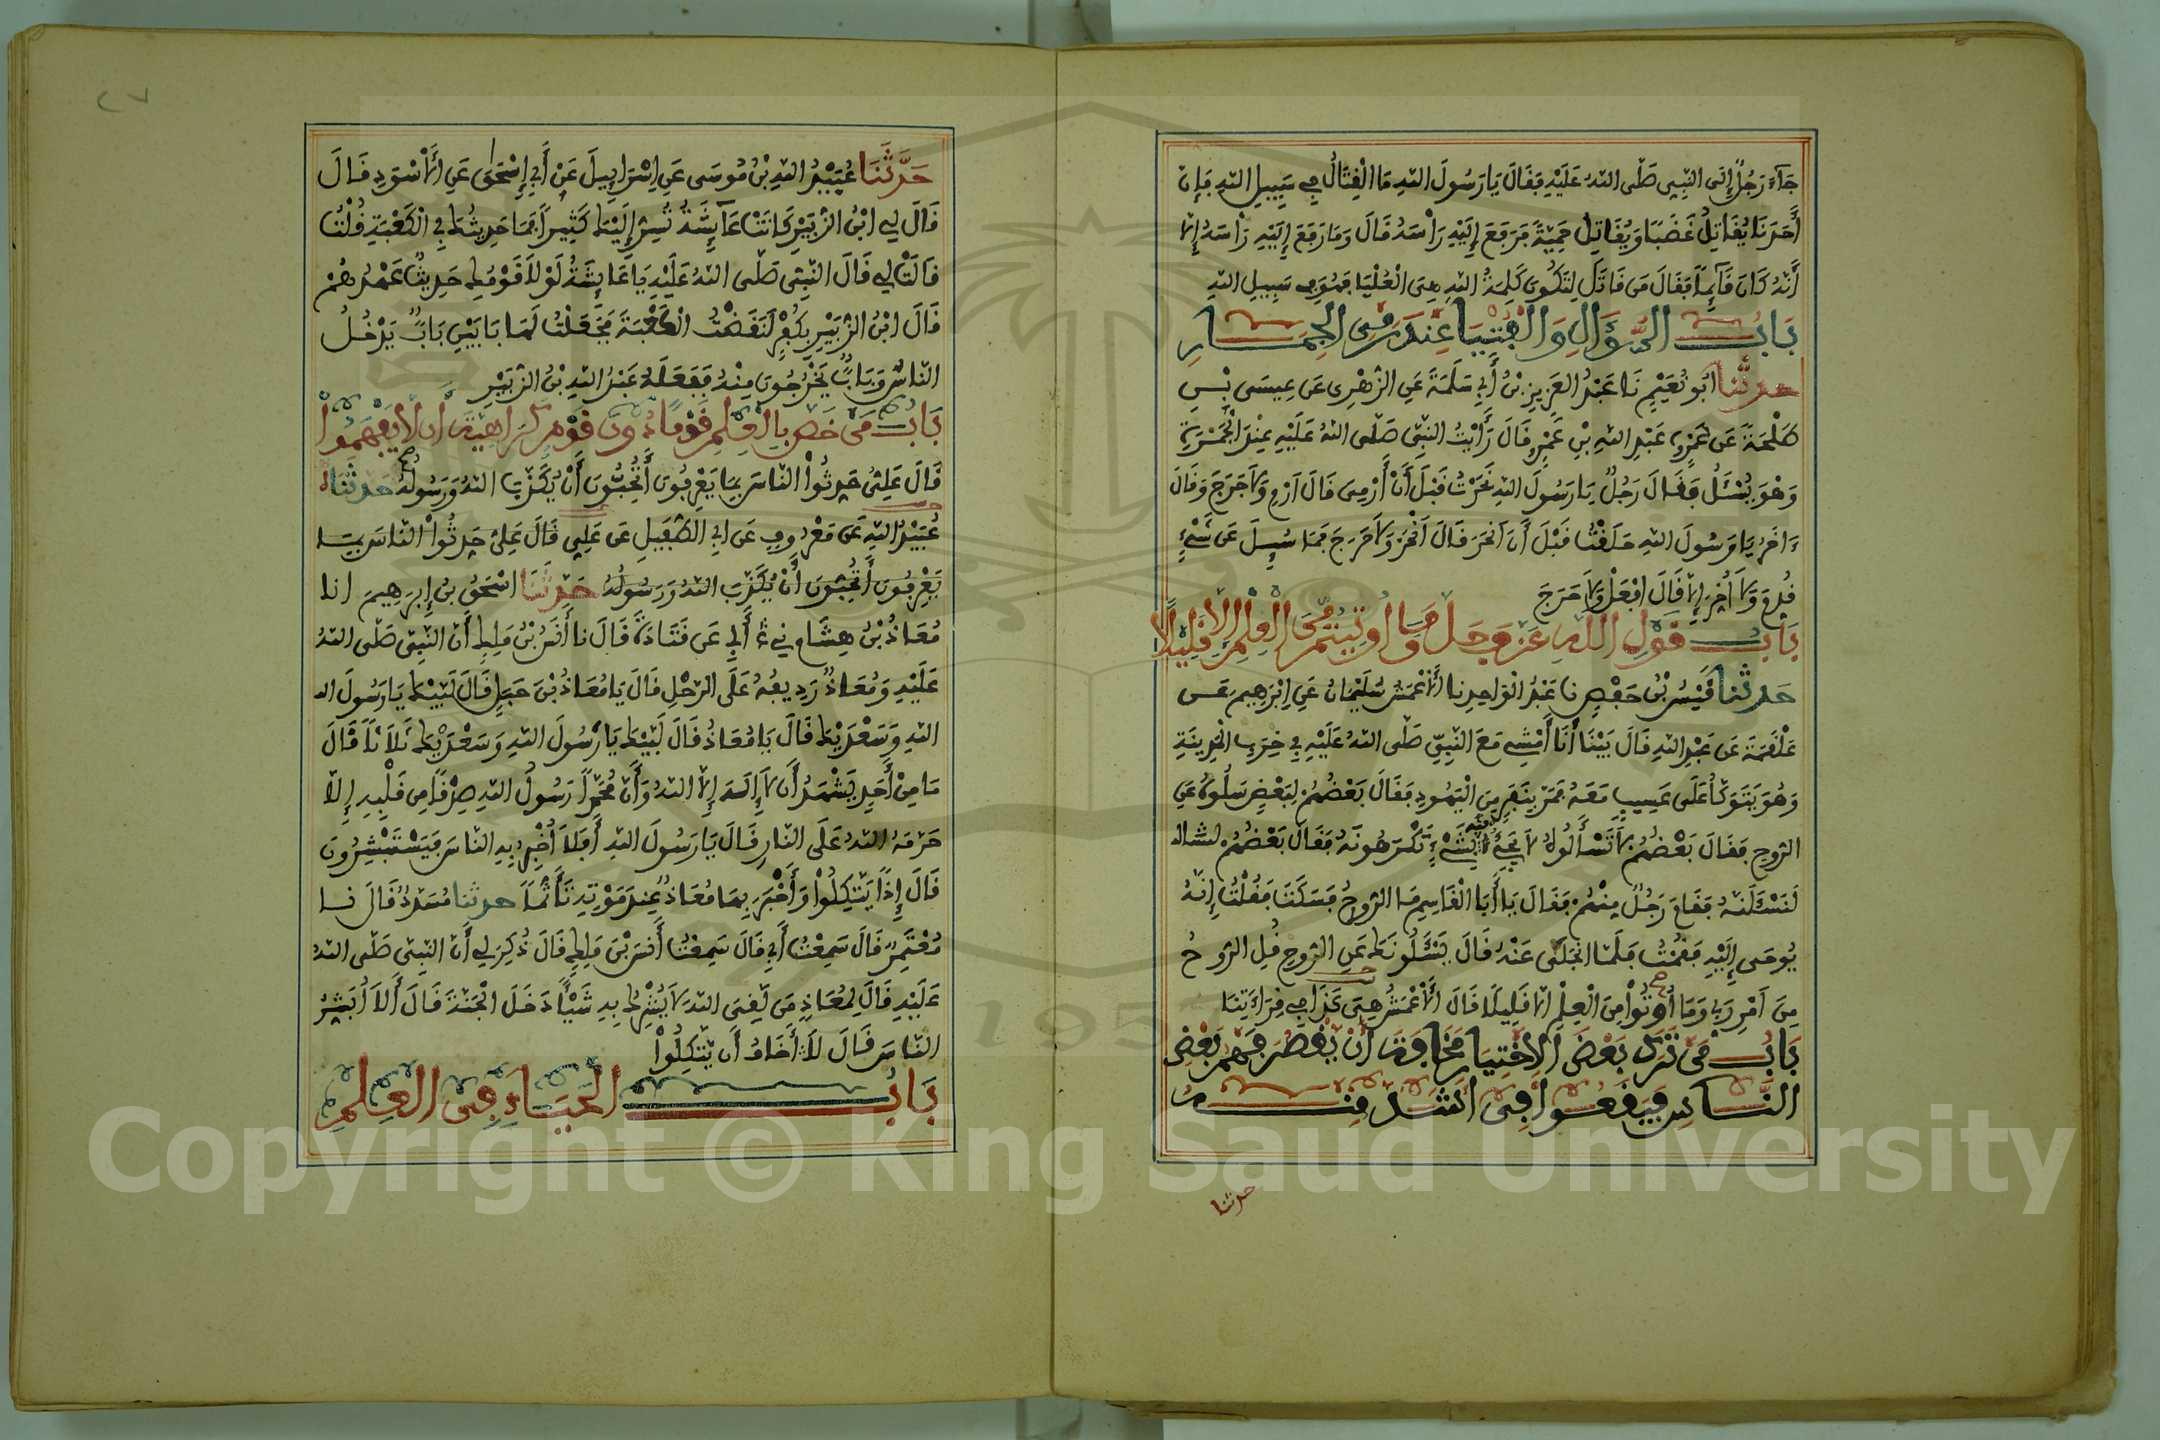 جَآءَ رَجُلٌ إِلَى النَّبِيِّ صَلَّى اللهُ عَلَيْهِ فَقَالَ يَا رَسُولَ اللهِ مَا الْقِتَالُ فِي سَبِيلِ اللهِ فَإِنَّ
أَحَدَنَا يُقَاتِلُ غَضَبًا وَيُقَاتِلُ حَمِيَّةً فَرَفَعَ إِلَيْهِ رَأْسَهُ قَالَ وَمَا رَفَعَ إِلَيْهِ رَأْسَهُ إِلَّا
أَنَّهُ كَانَ قَآئِمًا فَقَالَ مَن قَاتَلَ لِتَكُونَ كَلِمَةُ اللهِ هِيَ الْعُلْيَا فَهُوَ فِي سَبِيلِ اللهِ
بَابُ السُّؤَالِ وَالْفُتْيَا عِنْدَ رَمْيِ الْجِمَارِ
حدثنا أَبُو نُعَيْمٍ نَا عَبْدُ الْعَزِيزِ بْنُ أَبِي سَلَمَةَ عَنِ الزُّهْرِي عَن عِيسَى بْنِ
طَلْحَةَ عَن عَمْرٍو عَبْدِ اللهِ بْنِ عَمْرٍو قَالَ رَأَيْتُ النَّبِيَّ صَلَّى اللهُ عَلَيْهِ عِنْدَ الْجَمْرَةِ
وَهْوَ يُسْئَلُ فَقَالَ رَجُلٌ يَا رَسُولَ اللهِ نَحَرْتُ قَبْلَ أَنْ أَرْمِيَ قَالَ ارْمِ وَلَا حَرَجَ وَقَالَ
ءَاخَرُ يَا رَسُولَ اللهِ حَلَقْتُ قَبْلَ أَنْ أَنْحَرَ قَالَ انْحَرْ وَلَا حَرَجَ فَمَا سُئِلَ عَن شَيْءٍ
قُدِّمَ وَلَا أُخِّرَ إِلَّا قَالَ افْعَلْ وَلَا حَرَجَ
بَابُ قَوْلِ اللهِ عَزَّ وَجَلَّ وَمَا أُوتِيتُم مِّنَ الْعِلْمِ إِلَّا قَلِيلًا
حدثنا قَيْسُ بْنُ حَفْصٍ نا عَبْدُ الْوَاحِدِ نا الْأَعْمَشُ سُلَيْمَانُ عَنِ إِبْرَهِيمَ عَن
عَلْقَمَةَ عَن عَبْدِ اللهِ قَالَ بَيْنَا أَنَا أَمْشِي مَعَ النَّبِيِّ صَلَّى اللهُ عَلَيْهِ فِي خِرَبِ الْمَدِينَةِ
وَهُوَ يَتَوَكَّأُ عَلَى عَسِيبٍ مَعَهُ فَمَرَّ بِنَفَرٍ مِنَ الْيَهُودِ فَقَالَ بَعْضُهُمْ لِبَعْضٍ سَلُوهُ عَنِ
الرُّوحِ فَقَالَ بَعْضُهُمْ لَا تَسْأَلُوهُ لَا يَجِيءُ فيه بِشَيْءٍ تَكْرَهُونَهُ فَقَالَ بَعْضُهُمْ
لَنَسْئَلَنَّهُ فَقَامَ رَجُلٌ مِنْهُمْ فَقَالَ يَا أَبَا الْقَاسِمِ مَا الرُّوحُ فَسَكَتَ فَقُلْتُ إِنَّهُ
يُوحَى إِلَيْهِ فَقُمْتُ فَلَمَّا انْجَلَى عَنْهُ قَالَ يَسْئَلُونَكَ عَنِ الرُّوحِ قُلِ الرُّوحُ
مِنَ أَمْرِ رَبِّي وَمَا أُوتُواْ مِنَ الْعِلْمِ إِلَّا قَلِيلًا قَالَ الْأَعْمَشُ هِيَ كَذَا فِي قِرَاءَتِنَا
بَابُ مَن تَرَكَ بَعْضَ الِاخْتِيَارِ مَخَافَةَ أَنْ يَقْصُرَ فَهْمُ بَعْضِ
النَّاسِ فَيَقَعُوا فِي أَشَدَّ مِنْهُ
حدثنا
٢٧
حَدَّثَنَا عُبَيْدُ اللهِ بْنُ مُوسَى عَنِ إِسْرَائِيلَ عَنْ أَبِي إِسْحَقَ عَنِ الْأَسْوَدِ قَالَ
قَالَ لِي ابْنُ الزُّبَيْرِ كَانَتْ عَآئِشَةُ تُسِرُّ إِلَيْكَ كَثِيرًا فَمَا حَدِيثُكَ فِي الْكَعْبَةِ قُلْتُ
قَالَتْ لِي قَالَ النَّبِيُّ صَلَّى اللهُ عَلَيْهِ يَا عَائِشَةُ لَوْلَا قَوْمُكِ حَدِيثٌ عَهْدُهُمْ
قَالَ ابْنُ الزُّبَيْرِ بِكُفْرٍ لَنَقَضْتُ الْكَعْبَةَ فَجَعَلْتُ لَهَا بَابَيْنِ بَابٌ يَدْخُلُ
النَّاسُ وَبَابٌ يَخْرُجُونَ مِنْهُ فَفَعَلَهُ عَبْدُ اللهِ بْنُ الزُّبَيْرِ
بَابُ مَن خَصَّ بِالْعِلْمِ قَوْمًا دُونَ قَوْمٍ كَرَاهِيَةَ أَن لَّا يَفْهَمُوا
قَالَ عَلِيٌّ حَدِّثُواْ النَّاسَ بِمَا يَعْرِفُونَ أَتُحِبُّونَ أَنْ يُكَذَّبَ اللهُ وَرَسُولُهُ حَدثَنَا
عُبَيْدُ اللهِ عَن مَعْرُوفٍ عَن أَبِي الطُّفَيْلِ عَن عَلِيٍّ قَالَ عَلِيٌّ حَدِّثُواْ النَّاسَ بِمَا
يَعْرِفُونَ أَتُحِبُّونَ أَنْ يُكَذَّبَ اللهُ وَرَسُولُهُ حَدَّثَنَا إِسْحَقُ بْنُ إِبْرَهِيمَ انا
مُعَاذُ بْنُ هِشَامٍ ني أَبِي عَن قَتَادَةَ قَالَ نا أَنَسُ بْنُ مَلِكٍ أَنَّ النَّبِيَّ صَلَّى اللهُ
عَلَيْهِ وَمُعَاذٌ رَدِيفُهُ عَلَى الرَّحْلِ قَالَ يَا مُعَاذُ بْنَ جَبَلٍ قَالَ لَبَّيْكَ يَا رَسُولَ
اللهِ وَسَعْدَيْكَ قَالَ يَا مُعَاذُ قَالَ لَبَّيْكَ يَا رَسُولَ اللهِ وَسَعْدَيْكَ ثَلَاثًا قَالَ
مَا مِنْ أَحَدٍ يَشْهَدُ أَن لَّا إِلَهَ إِلَّا اللهُ وَأَنَّ مُحَمَّدًا رَسُولُ اللهِ صِدْقًا مِن قَلْبِهِ إِلَّا
حَرَّمَهُ اللهُ عَلَى النَّارِ قَالَ يَا رَسُولَ اللهِ أَفَلَا أُخْبِرُ بِهِ النَّاسَ فَيَسْتَبْشِرُونَ
قَالَ إِذًا يَتَّكِلُوا وَأَخْبَرَ بِهَا مُعَاذٌ عِنْدَ مَوْتِهِ تَأَثُّمًا حدثنا مُسَدَّدٌ قَالَ نا
مُعْتَمِرٌ قَالَ سَمِعْتُ أَبِي قَالَ سَمِعْتُ أَنَسَ بْنَ مَلِكٍ قَالَ ذُكِرَ لِي أَنَّ النَّبِيَّ صَلَّى اللهُ
عَلَيْهِ قَالَ لِمُعَاذٍ مَن لَقِيَ اللهَ لَا يُشْرِكُ بِهِ شَيْئًا دَخَلَ الْجَنَّةَ قَالَ أَلَا أُبَشِّرُ
النَّاسَ قَالَ لَا أَخَافُ أَن يَتَّكِلُواْ
بَابُ الْحَيَاءِ فِي الْعِلْمِ
Copyright © King Saud University